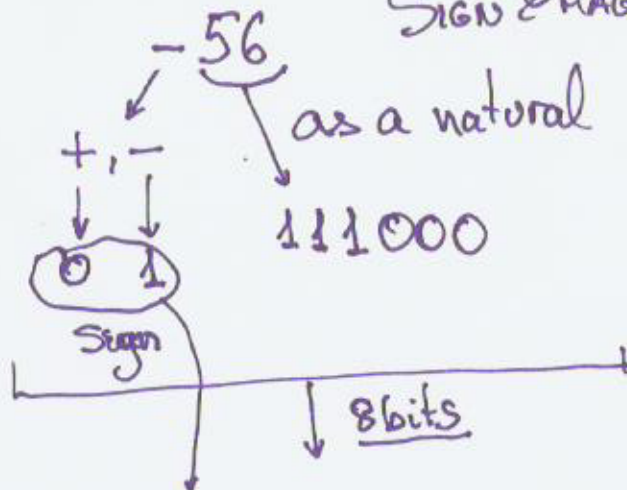 SIGN & MAG
-56
as a natural
+, -
111000
0 1
Sign
8 bits